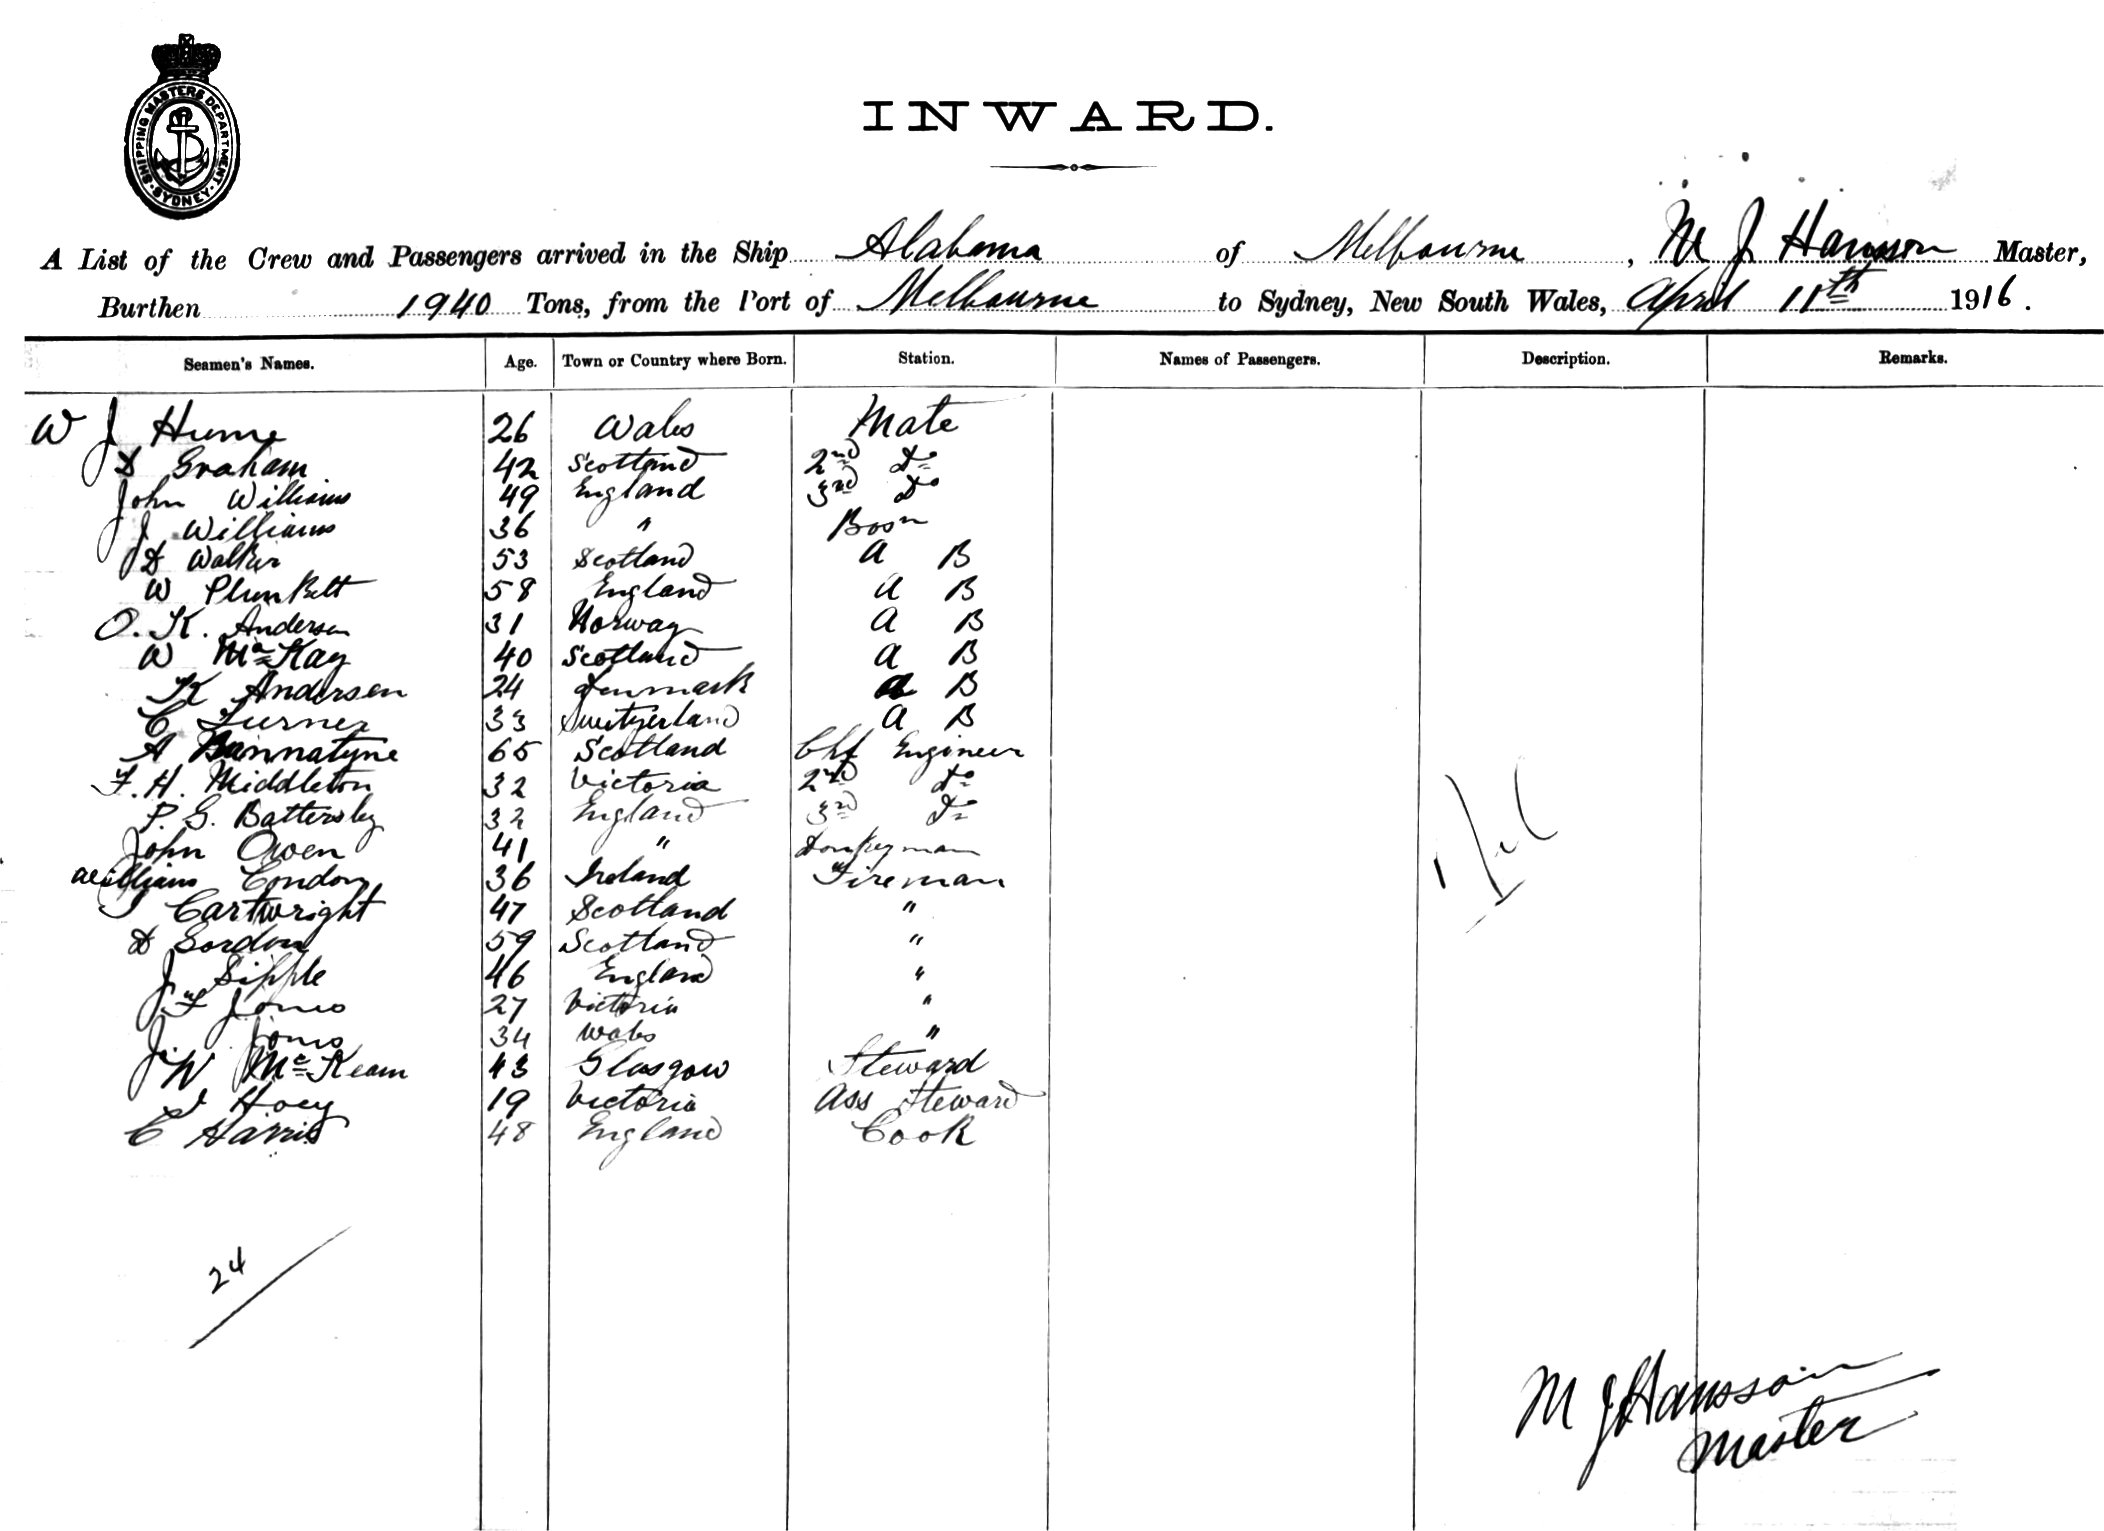 SHIPPING MASTERS DEPARTMENT. SYDNEY.
INWARD.
A List of the Crew and Passengers arrived in the Ship Alabama of Melbourne, M J Hansson Master,
Burthen 1940 Tons, from the Port of Melbourne to Sydney, New South Wales, April 11th 1916.
Seamen's Names. Age. Town or Country where Born. Station. Names of Passengers. Description. Remarks.
W J Hume 26 Wales Mate
D Graham 42 Scotland 2nd Do
John Williams 49 England 3rd Do
J Williams 36 " Bosn
D Walker 53 Scotland A B
W Plunkett 58 England A B
O. K. Andersen 31 Norway A B
W McKay 40 Scotland A B
K Andersen 24 Denmark A B
C Turner 33 Switzerland A B
A Bannatyne 65 Scotland Chf Engineer
F. H. Middleton 32 Victoria 2nd Do
P. G. Battersby 32 England 3rd Do
John Owen 41 " Donkeyman
Condon 36 Ireland Fireman
J Cartwright 47 Scotland "
D Gordon 59 Scotland "
J Sipple 46 England "
J. F Jones 27 Victoria "
J. Jones 34 Wales "
W McKeam 43 Glasgow Steward
Hoey 19 Victoria Ass Steward
C Harris 48 England Cook
24
M J Hansson
Master